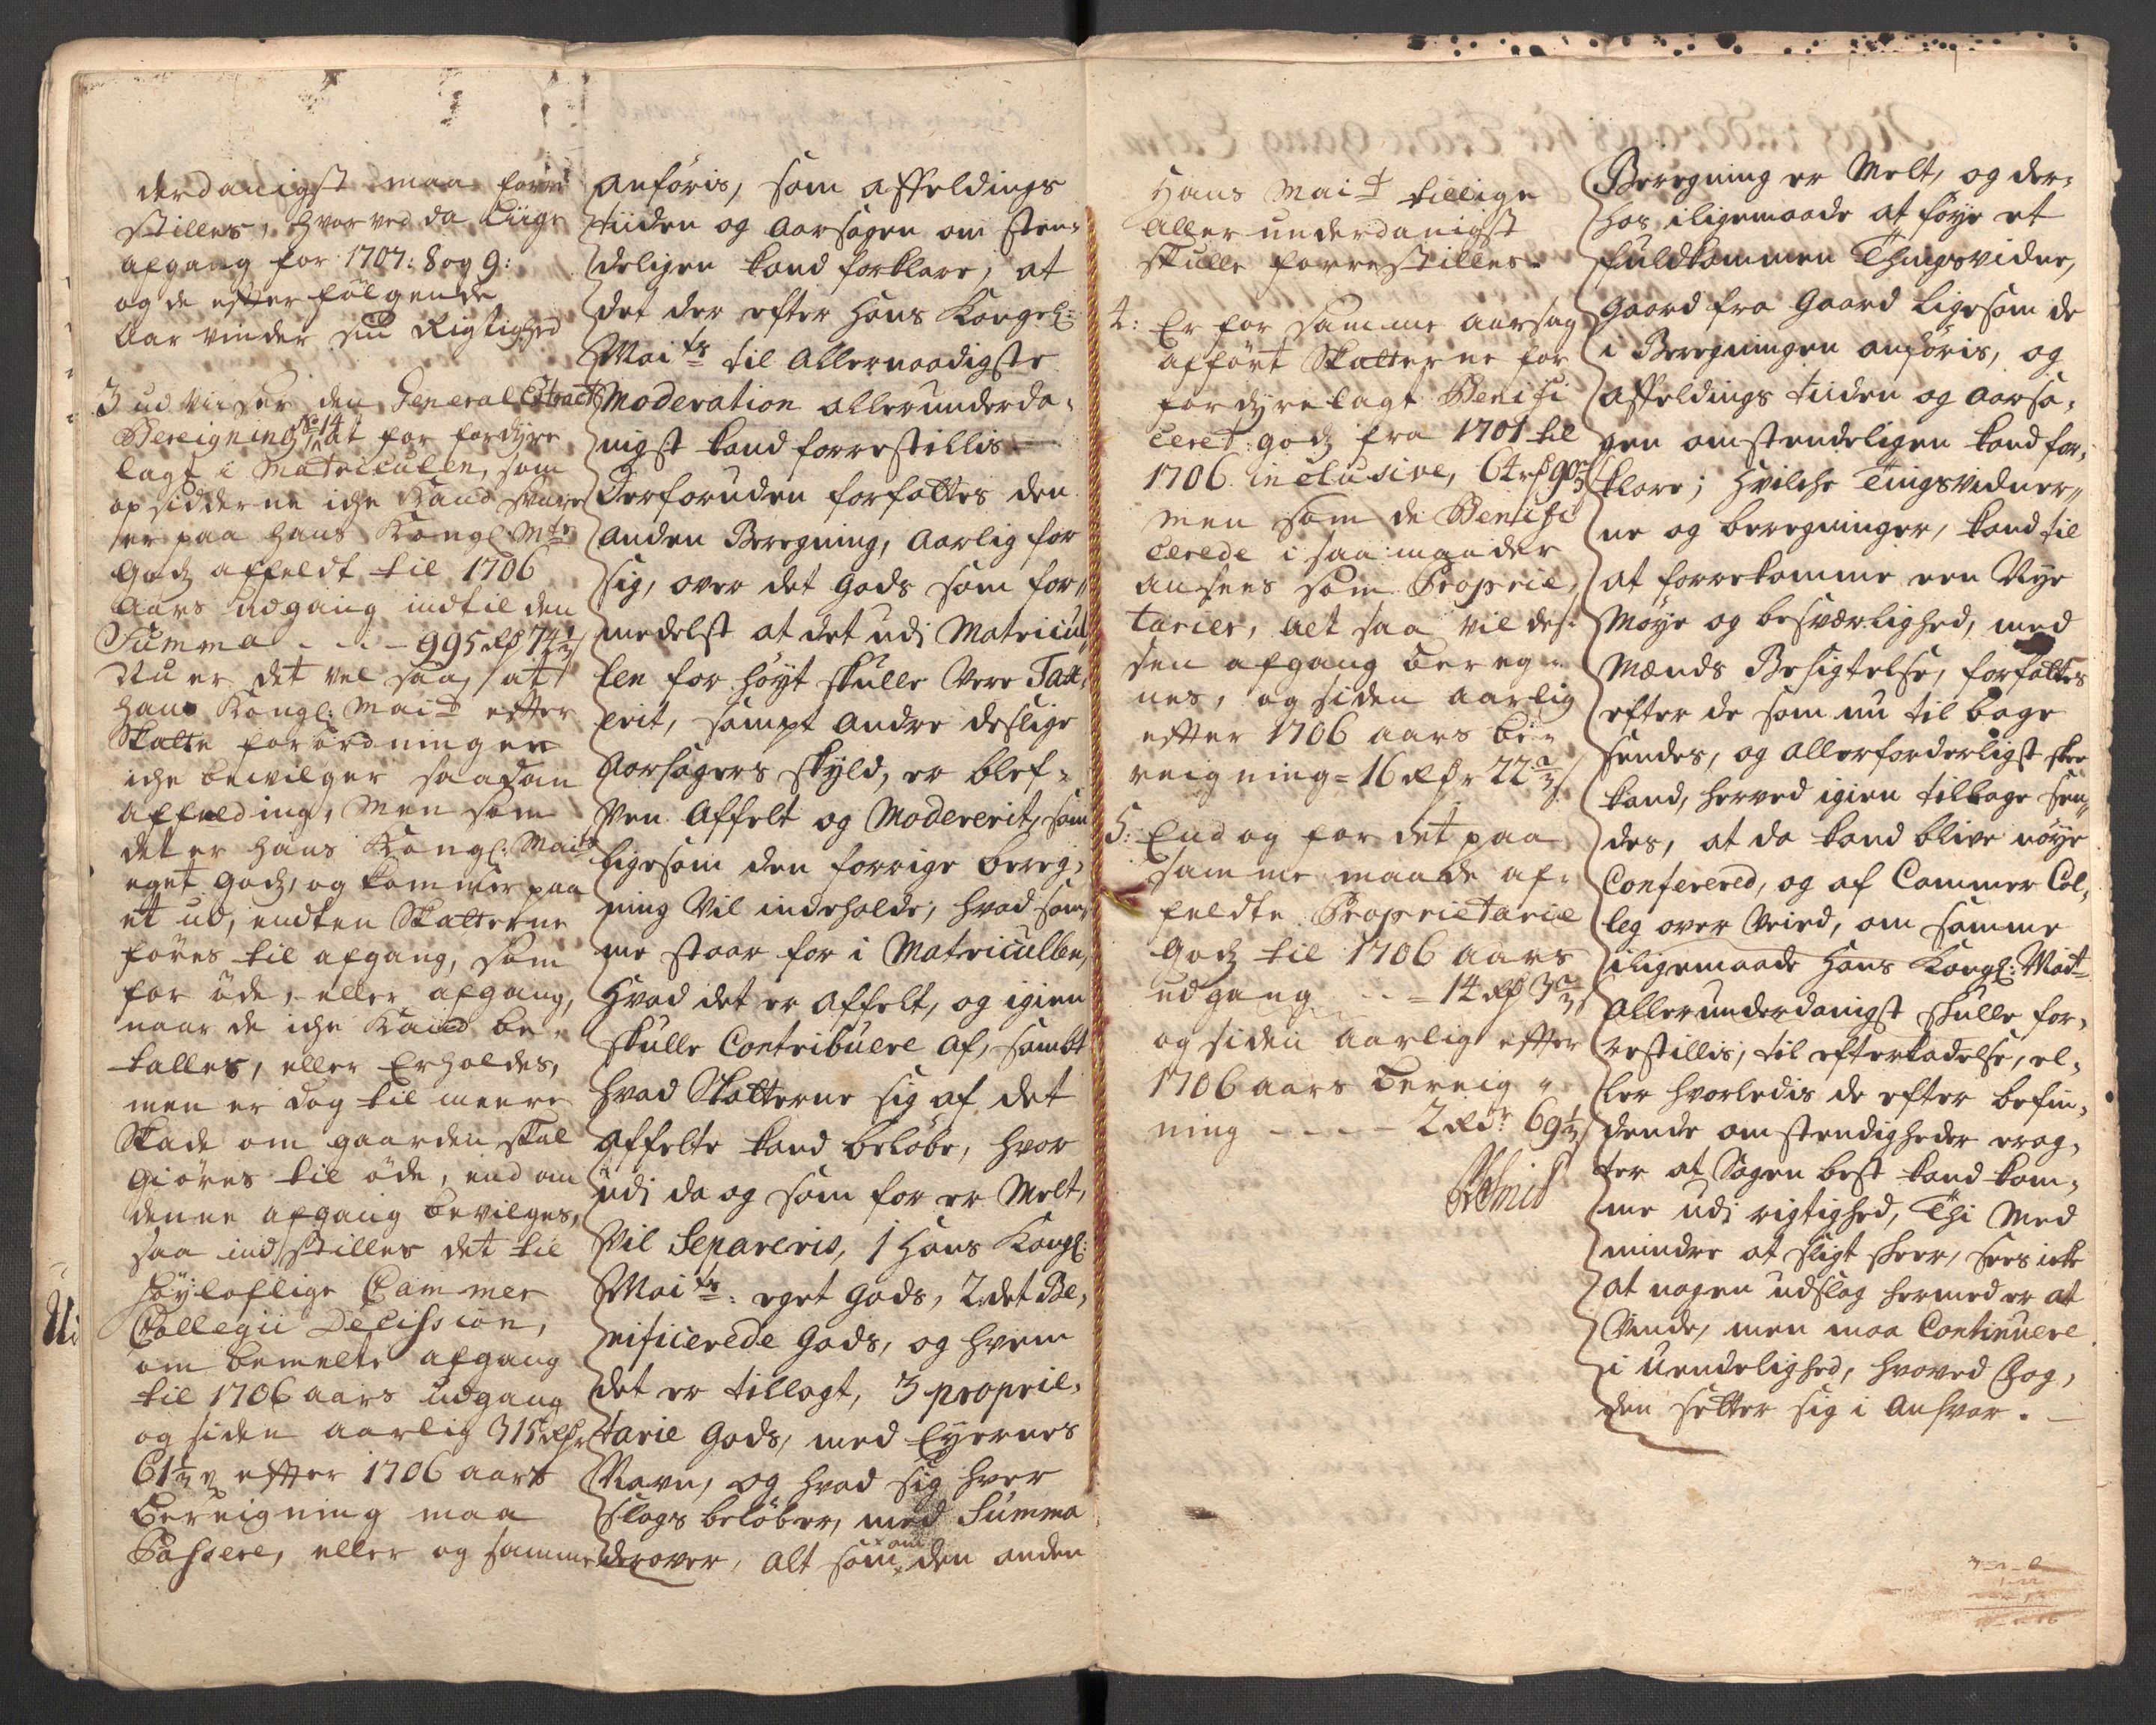 derdanigst maa forre
stilles, hvorved da Liige
afgang for 1707: 8 og 9:
og de efter følgende
Aar vinder sin Rigtighed
3 udviiser den General Extract
Bereigning No 14 at for fordyre
lagt i Matriculen, som
opsidderne iche Kand svare
er paa Hans Kongl: Mts
Godz affeldt til 1706
Aars udgang indtil den
Summa - - - 995 rd 74½
Nu er det vel saa, at
Hans Kongl: Mait efter
Skatte forordningen
iche bevilger saadan
affelding, Men som
det er Hans Kongl: Maits
eget Godz, og kommer paa
et ud, endten Skatterne
føres til afgang, som
for øde, eller afgang,
naar de iche Kand be-
talles, eller Erholdes,
men er dog til meere
Skade om gaarden skal
Giøres til øde, end om
denne afgang bevilges,
saa indstilles det til
høyloflige Cammer
Collegii Decission,
om bemelte afgang
til 1706 aars udgang
og siden aarlig 315 rdr
61½ efter 1706 aars
Bereigning maa
Passere, eller og samme
anføris, som affeldings
tiiden og Aarsagen om sten-
deligen kand forklare, at
det der efter Hans Kongel:
Maits til Allernaadigste
Moderation allerunderda-
nigst kand forrestillis -
Derforuden forfattes den
anden Beregning, Aarlig for
sig, over det Gods som for-
medelst at det udi Matricul
len for høyt skulle vere Tax-
erit, sampt andre deslige
Aarsagers skyld, er blef-
ven Affelt og Modererit, som
ligesom den forrige bereg-
ning vil indeholde, hvad sam-
me staar for i Matricullen,
Hvad det er affelt, og igien
skulle Contribuere af, sambt
hvad Skatterne sig af det
affelte kand beløbe, hvor
udi da og som for er Melt,
vil Separeris, 1 Hans Kongl:
Maits: eget Gods, 2: det Be-
nificerede Gods, og hvem
det er tillagt, 3 proprie-
tarie Gods, med Eyernes
Navn, og hvad sig hver
slags beløber, med Summa
derover, alt som om den anden
Hans Mait tillige
Aller underdanigst
skulle forrestilles.
4: Er for samme aarsag
afført Skatterne for
fordyrelagt Benifi
ceret: godz fra 1701 til
1706 inclusive, 64 rd 90⅔
men som de Benifi
cerede i saa maader
ansees som Proprie
tarier, alt saa vil des-
sen afgang bereg-
nes, og siden aarlig
efter 1706 aars be-
reigning = 16 rdr 22⅔
5: End og for det paa
samme maade af-
feldte Proprietarie
Godz til 1706 aars
udgang - - = 14 rd 3⅔
og siden aarlig efter
1706 aars bereig-
ning - - - - 2 rdr 69½
Beregning er Melt, og der-
hos iligemaade at føye et
fuldkommen Thingsvidne,
Gaard fra Gaard ligesom de
i Beregningen anføris, og
affeldings tiiden og Aarsa-
gen omstendeligen kand for-
klare; hvilche Tingsvidner-
ne og beregninger, kand til
at forrekomme een Nye
Møye og besværlighed, med
Mænds Besigtelse, forfattes
efter de som nu til bage
sendes, og allerforderligst skee
kand, herved igien tilbage sen-
des, at da kand blive nøye
Conferered, og af Cammer Col-
leg over veied, om samme
iligemaade Hans Kongl: Mait
Allerunderdanigst skulle for-
restillis, til efterladelse, el-
ler hvorledis de efter befin-
dende omstendigheder erag-
ter at Sagen best kand kom-
me udi rigtighed, Thi Med
mindre at sligt skeer, sees ikke
at nogen udslag hermed er at
vinde, men maa Continuere
i uendelighed, hvoved Fog-
den setter sig i Ansvar.